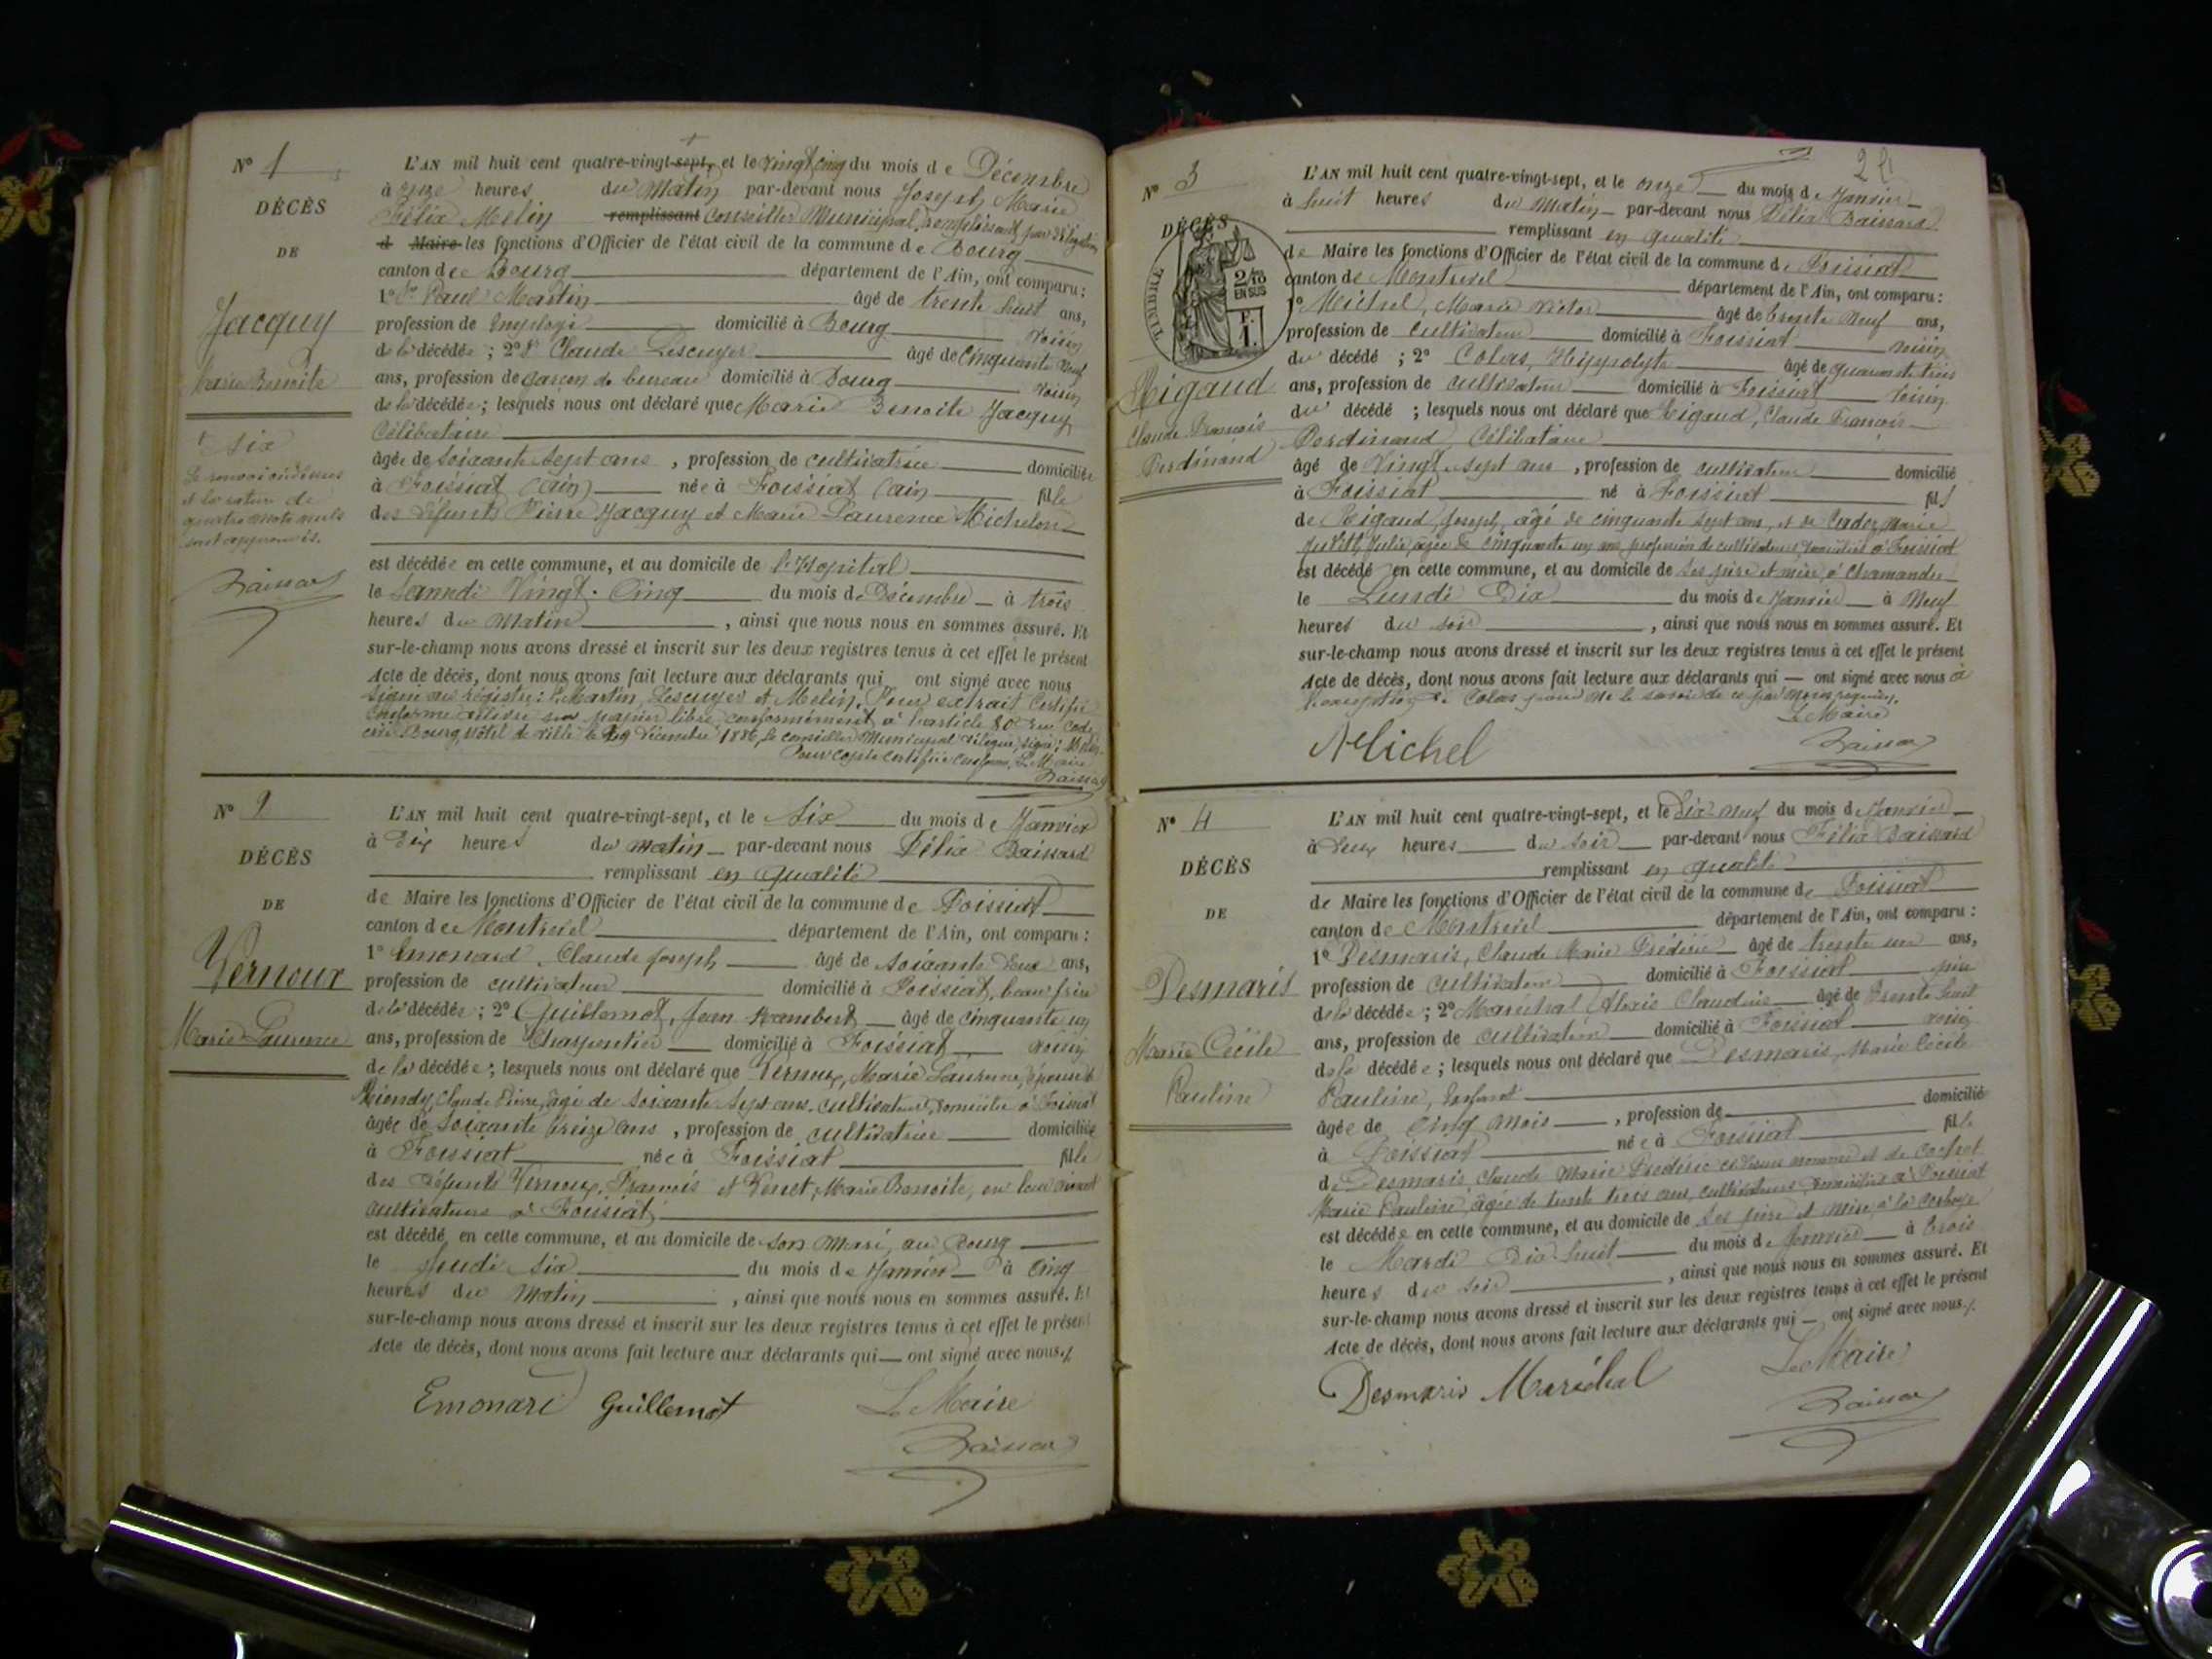 N° 1
DÉCÈS
DE
Jacquy
Marie Benoite
+ Six
Le renvoi ci-dessus
et la rature de
quatre mots nuls
sont approuvés.
L'AN mil huit cent quatre-vingt-sept, et le vingt cinq du mois de Décembre
à onze heures du Matin par-devant nous Joseph Marie
Félix Melin remplissant Conseiller Municipal, remplissant par délégation
d Maire les fonctions d'Officier de l'état civil de la commune de Bourg
canton de Bourg département de l'Ain, ont comparu :
1° Sr Paul Martin âgé de trente huit ans,
profession de Employé domicilié à Bourg voisin
de la décédée ; 2° Sr Claude Lescuyer âgé de Cinquante neuf
ans, profession de garçon de bureau domicilié à Bourg voisin
de la décédée ; lesquels nous ont déclaré que Marie Benoite Jacquy
Célibataire
âgée de Soixante Sept ans, profession de cultivatrice domiciliée
à Foissiat (Ain) née à Foissiat (Ain) fille
des défunts Pierre Jacquy et Marie Laurence Michelon
est décédée en cette commune, et au domicile de l'Hopital
le Samedi Vingt-Cinq du mois de Décembre à trois
heures du Matin, ainsi que nous nous en sommes assuré. Et
sur-le-champ nous avons dressé et inscrit sur les deux registres tenus à cet effet le présent
Acte de décès, dont nous avons fait lecture aux déclarants qui ont signé avec nous
Signé au registre : P. Martin, Lescuyer et Melin. Pour extrait certifié
conforme délivré sur papier libre conformément à l'article 80 du Code
civil Bourg, Hôtel de ville le 29 Décembre 1886, Le Conseiller Municipal délégué, signé : Melin
Pour copie certifiée conforme, Le Maire
N° 2
DÉCÈS
DE
Vernoux
Marie Laurence
L'AN mil huit cent quatre-vingt-sept, et le Six du mois de Janvier
à dix heures du matin par-devant nous Félix Baissard
remplissant en qualité
de Maire les fonctions d'Officier de l'état civil de la commune de Foissiat
canton de Montrevel département de l'Ain, ont comparu :
1° Emonard, Claude Joseph âgé de soixante deux ans,
profession de cultivateur domicilié à Foissiat, beau frère
de la décédée ; 2° Guillemot, Jean Rambert âgé de cinquante un
ans, profession de Charpentier domicilié à Foissiat voisin
de la décédée ; lesquels nous ont déclaré que Vernoux, Marie Laurence, épouse de
Claude Pierre, âgé de soixante Sept ans, cultivateur, domicilié à Foissiat
âgée de Soixante treize ans, profession de cultivatrice domiciliée
à Foissiat née à Foissiat fille
des défunts Vernoux, François et Venet, Marie Benoite, en leur vivant
cultivateurs à Foissiat
est décédé en cette commune, et au domicile de son mari, au Bourg
le Jeudi Six du mois de Janvier à Cinq
heures du Matin, ainsi que nous nous en sommes assuré. Et
sur-le-champ nous avons dressé et inscrit sur les deux registres tenus à cet effet le présent
Acte de décès, dont nous avons fait lecture aux déclarants qui — ont signé avec nous
Emonard Guillemot Le Maire
24
N° 3
DÉCÈS
TIMBRE
2/10 EN SUS
F. 1.
Rigaud
Claude François
Ferdinand
L'AN mil huit cent quatre-vingt-sept, et le onze du mois de Janvier
à huit heures du Matin par-devant nous Félix Baissard
remplissant en qualité
de Maire les fonctions d'Officier de l'état civil de la commune de Foissiat
canton de Montrevel département de l'Ain, ont comparu :
1° Michel, Marie Victor âgé de trente Neuf ans,
profession de cultivateur domicilié à Foissiat voisin
du décédé ; 2° Colas, Hyppolyte âgé de quarante trois
ans, profession de cultivateur domicilié à Foissiat voisin
du décédé ; lesquels nous ont déclaré que Rigaud, Claude François
Ferdinand, Célibataire
âgé de Vingt-Sept ans, profession de cultivateur domicilié
à Foissiat né à Foissiat fils
de Rigaud, Joseph, âgé de cinquante sept ans, et de Marie
Julie, âgée de cinquante un ans, profession de cultivateurs domiciliés à Foissiat
est décédé en cette commune, et au domicile de ses père et mère, à Chamandre
le Lundi Dix du mois de Janvier à Neuf
heures du soir, ainsi que nous nous en sommes assuré. Et
sur-le-champ nous avons dressé et inscrit sur les deux registres tenus à cet effet le présent
Acte de décès, dont nous avons fait lecture aux déclarants qui — ont signé avec nous à
l'exception de Colas pour ne le savoir de ce par nous requis.
Le Maire
Michel
N° 4
DÉCÈS
DE
Desmaris
Marie Cécile
Pauline
L'AN mil huit cent quatre-vingt-sept, et le Dix-neuf du mois de Janvier
à deux heures du soir par-devant nous Félix Baissard
remplissant en qualité
de Maire les fonctions d'Officier de l'état civil de la commune de Foissiat
canton de Montrevel département de l'Ain, ont comparu :
1° Desmaris, Claude Marie Frédéric âgé de trente un ans,
profession de cultivateur domicilié à Foissiat père
de la décédée ; 2° Maréchal Alexis Claudius âgé de trente huit
ans, profession de cultivateur domicilié à Foissiat voisin
de la décédée ; lesquels nous ont déclaré que Desmaris, Marie Cécile
Pauline, Enfant
âgée de cinq mois, profession de domicilié
à Foissiat née à Foissiat fille
de Desmaris, Claude Marie Frédéric ci dessus nommé et de
Marie Pauline, âgée de trente trois ans, cultivateurs domiciliés à Foissiat
est décédée en cette commune, et au domicile de ses père et mère, à la
le Mardi Dix huit du mois de Janvier à trois
heures du soir, ainsi que nous nous en sommes assuré. Et
sur-le-champ nous avons dressé et inscrit sur les deux registres tenus à cet effet le présent
Acte de décès, dont nous avons fait lecture aux déclarants qui — ont signé avec nous
Desmaris Maréchal Le Maire